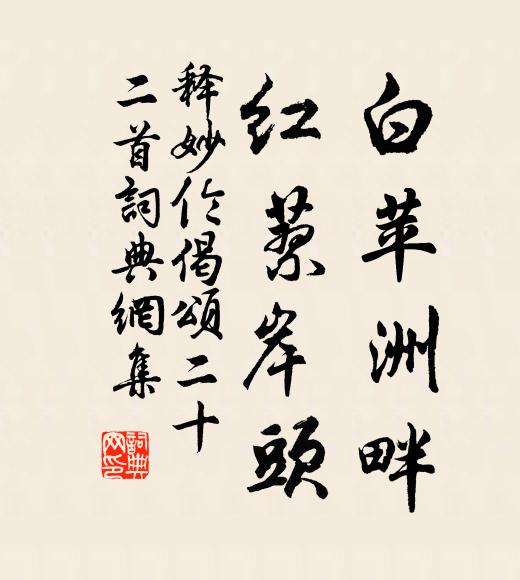 白苹洲畔
红蓼岸头
释妙伦偈颂二十
二首詞典網集
詞典
网印